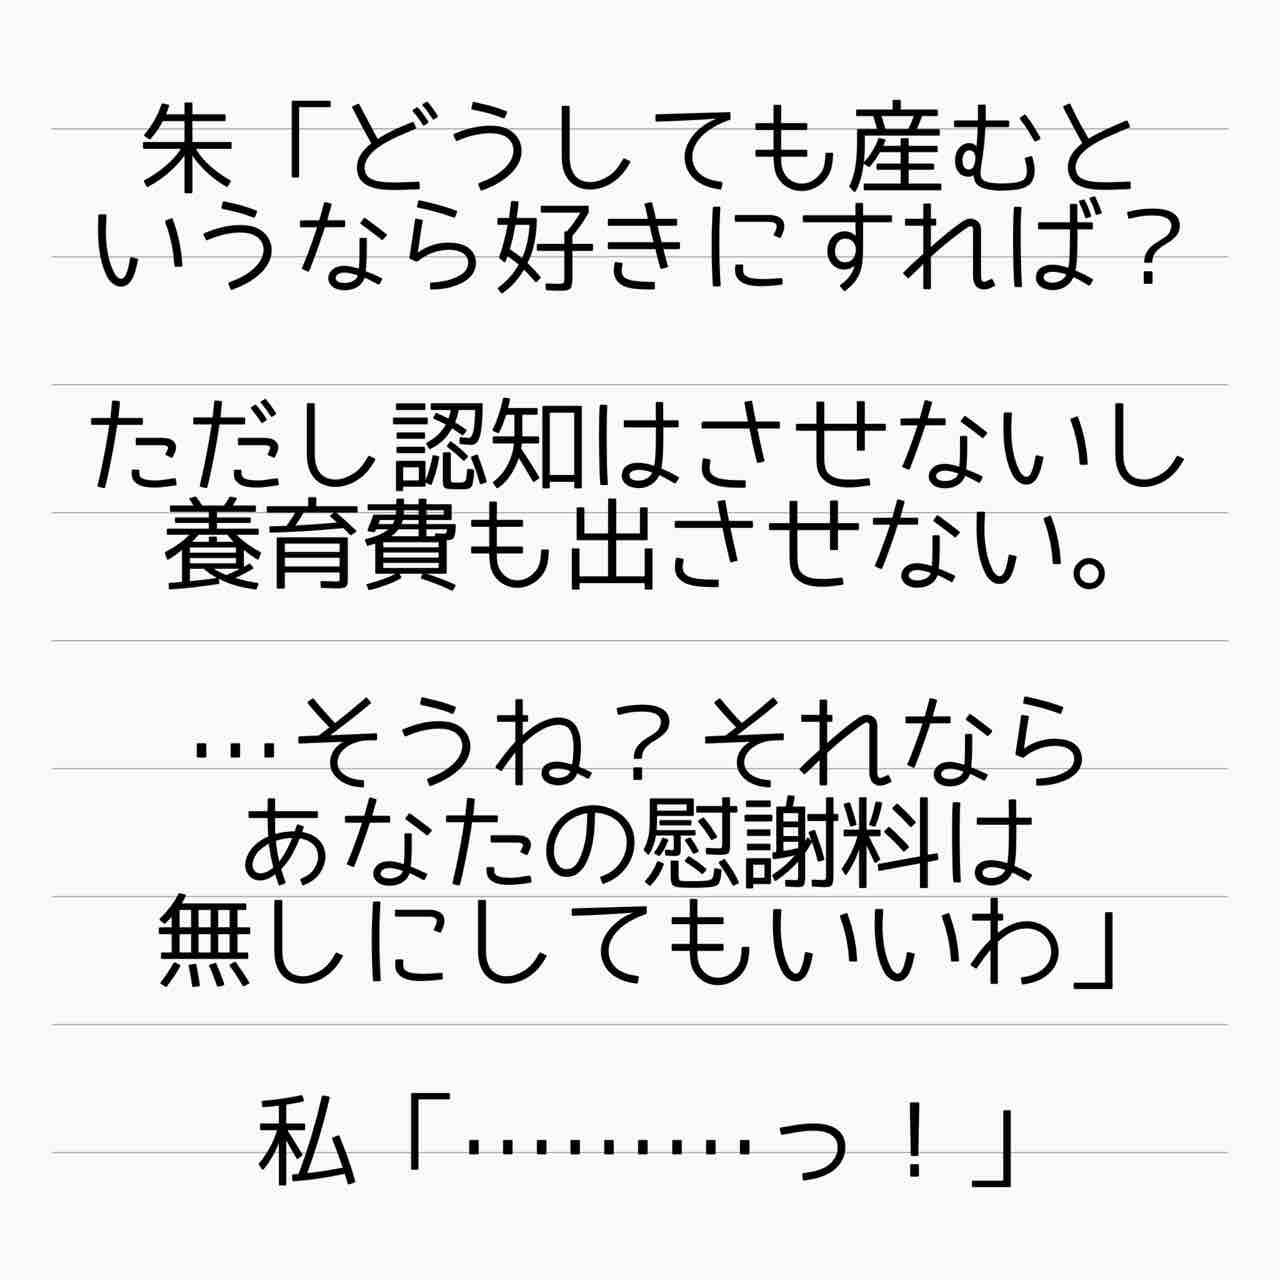 朱「どうしても産むと
いうなら好きにすれば？
ただし認知はさせないし
養育費も出させない。
…そうね？それなら
あなたの慰謝料は
無しにしてもいいわ」
私「………っ！」